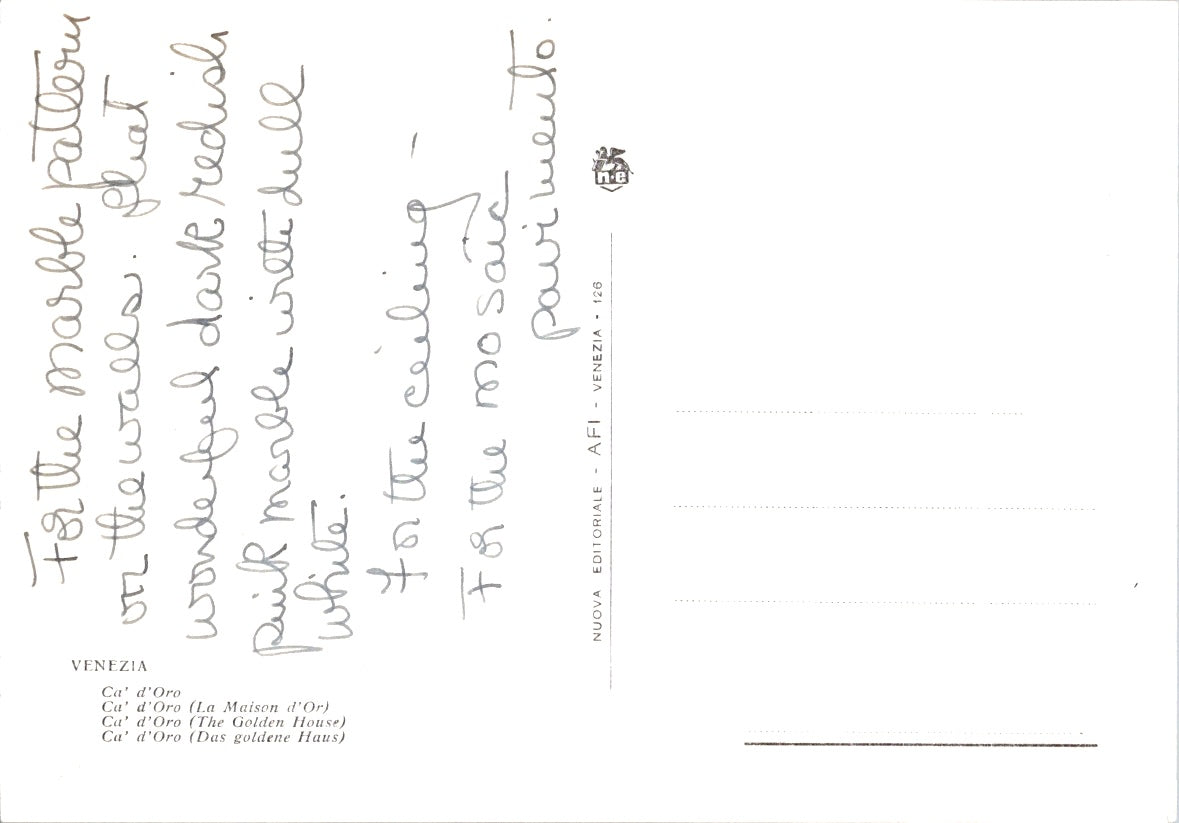 For the marble pattern
on the walls. that
wonderful dark redish
pink marble with dull
white.
for the ceiling -
For the mosaic
pavimento.
VENEZIA
Ca' d'Oro
Ca' d'Oro (La Maison d'Or)
Ca' d'Oro (The Golden House)
Ca' d'Oro (Das goldene Haus)
n·e
NUOVA EDITORIALE - AFI - VENEZIA - 126